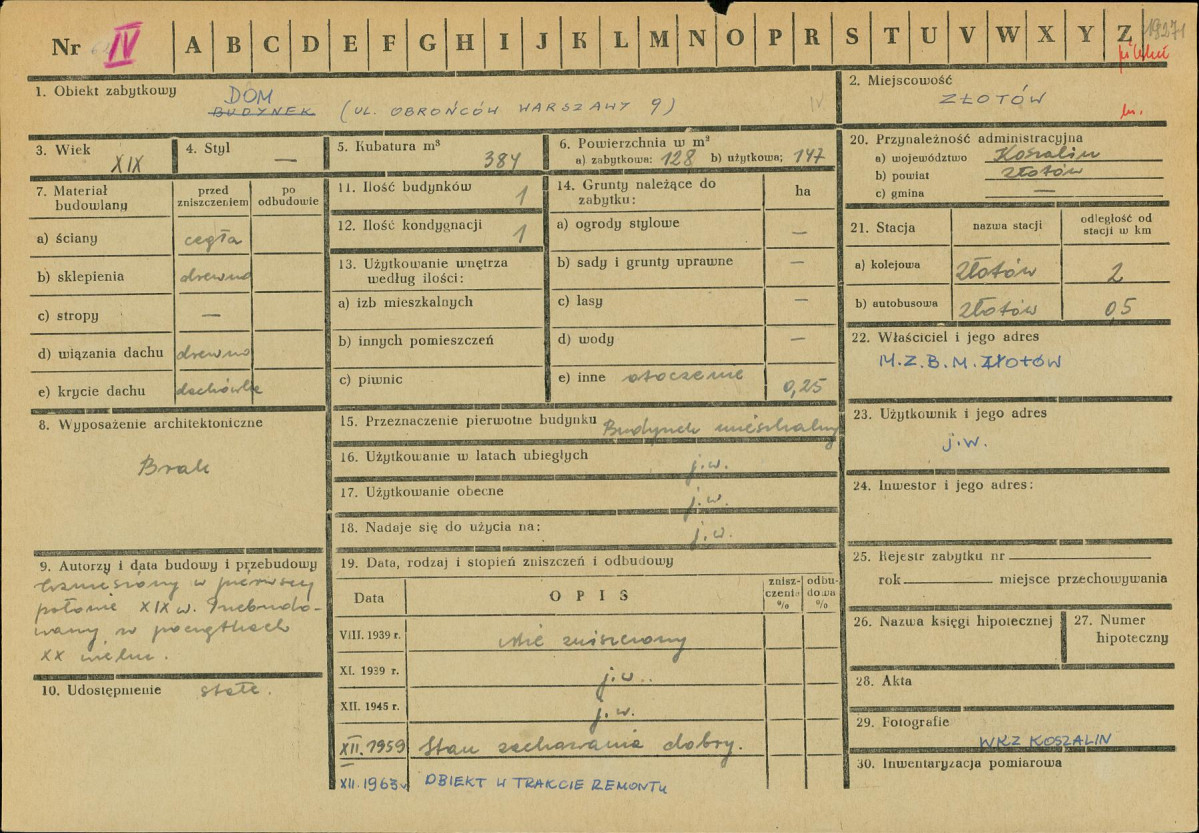 Nr IV A B C D E F G H I J K L M N O P R S T U V W X Y Z
1. Obiekt zabytkowy
DOM
BUDYNEK (UL. OBROŃCÓW WARSZAWY 9)
IV
2. Miejscowość
ZŁOTÓW
3. Wiek
XIX
4. Styl
—
5. Kubatura m³
384
6. Powierzchnia w m²
a) zabytkowa: 128 b) użytkowa; 147
20. Przynależność administracyjna
a) województwo Koszalin
b) powiat złotów
c) gmina —
7. Materiał budowlany
przed zniszczeniem
po odbudowie
a) ściany cegła
b) sklepienia drewno
c) stropy —
d) wiązania dachu drewno
e) krycie dachu dachówka
11. Ilość budynków 1
12. Ilość kondygnacji 1
13. Użytkowanie wnętrza
według ilości:
a) izb mieszkalnych
b) innych pomieszczeń
c) piwnic
14. Grunty należące do
zabytku:
ha
a) ogrody stylowe —
b) sady i grunty uprawne —
c) lasy —
d) wody —
e) inne otoczenie 0,25
21. Stacja
nazwa stacji
odległość od
stacji w km
a) kolejowa Złotów 2
b) autobusowa Złotów 0,5
22. Właściciel i jego adres
M.Z.B.M. ZŁOTÓW
23. Użytkownik i jego adres
j.w.
24. Inwestor i jego adres:
8. Wyposażenie architektoniczne
Brak
15. Przeznaczenie pierwotne budynku Budynek mieszkalny
16. Użytkowanie w latach ubiegłych j.w.
17. Użytkowanie obecne j.w.
18. Nadaje się do użycia na: j.w.
9. Autorzy i data budowy i przebudowy
Wzniesiony w pierwszej
połowie XIX w. Przebudo-
wany w początkach
XX wieku.
10. Udostępnienie stałe.
19. Data, rodzaj i stopień zniszczeń i odbudowy
Data
OPIS
znisz-
czenia
%
odbu-
dowa
%
VIII. 1939 r. nie zniszczony
XI. 1939 r. j.w.
XII. 1945 r. j.w.
XII. 1959 Stan zachowania dobry.
XII. 1963 OBIEKT W TRAKCIE REMONTU
25. Rejestr zabytku nr
rok miejsce przechowywania
26. Nazwa księgi hipotecznej
27. Numer
hipoteczny
28. Akta
29. Fotografie
WKZ KOSZALIN
30. Inwentaryzacja pomiarowa